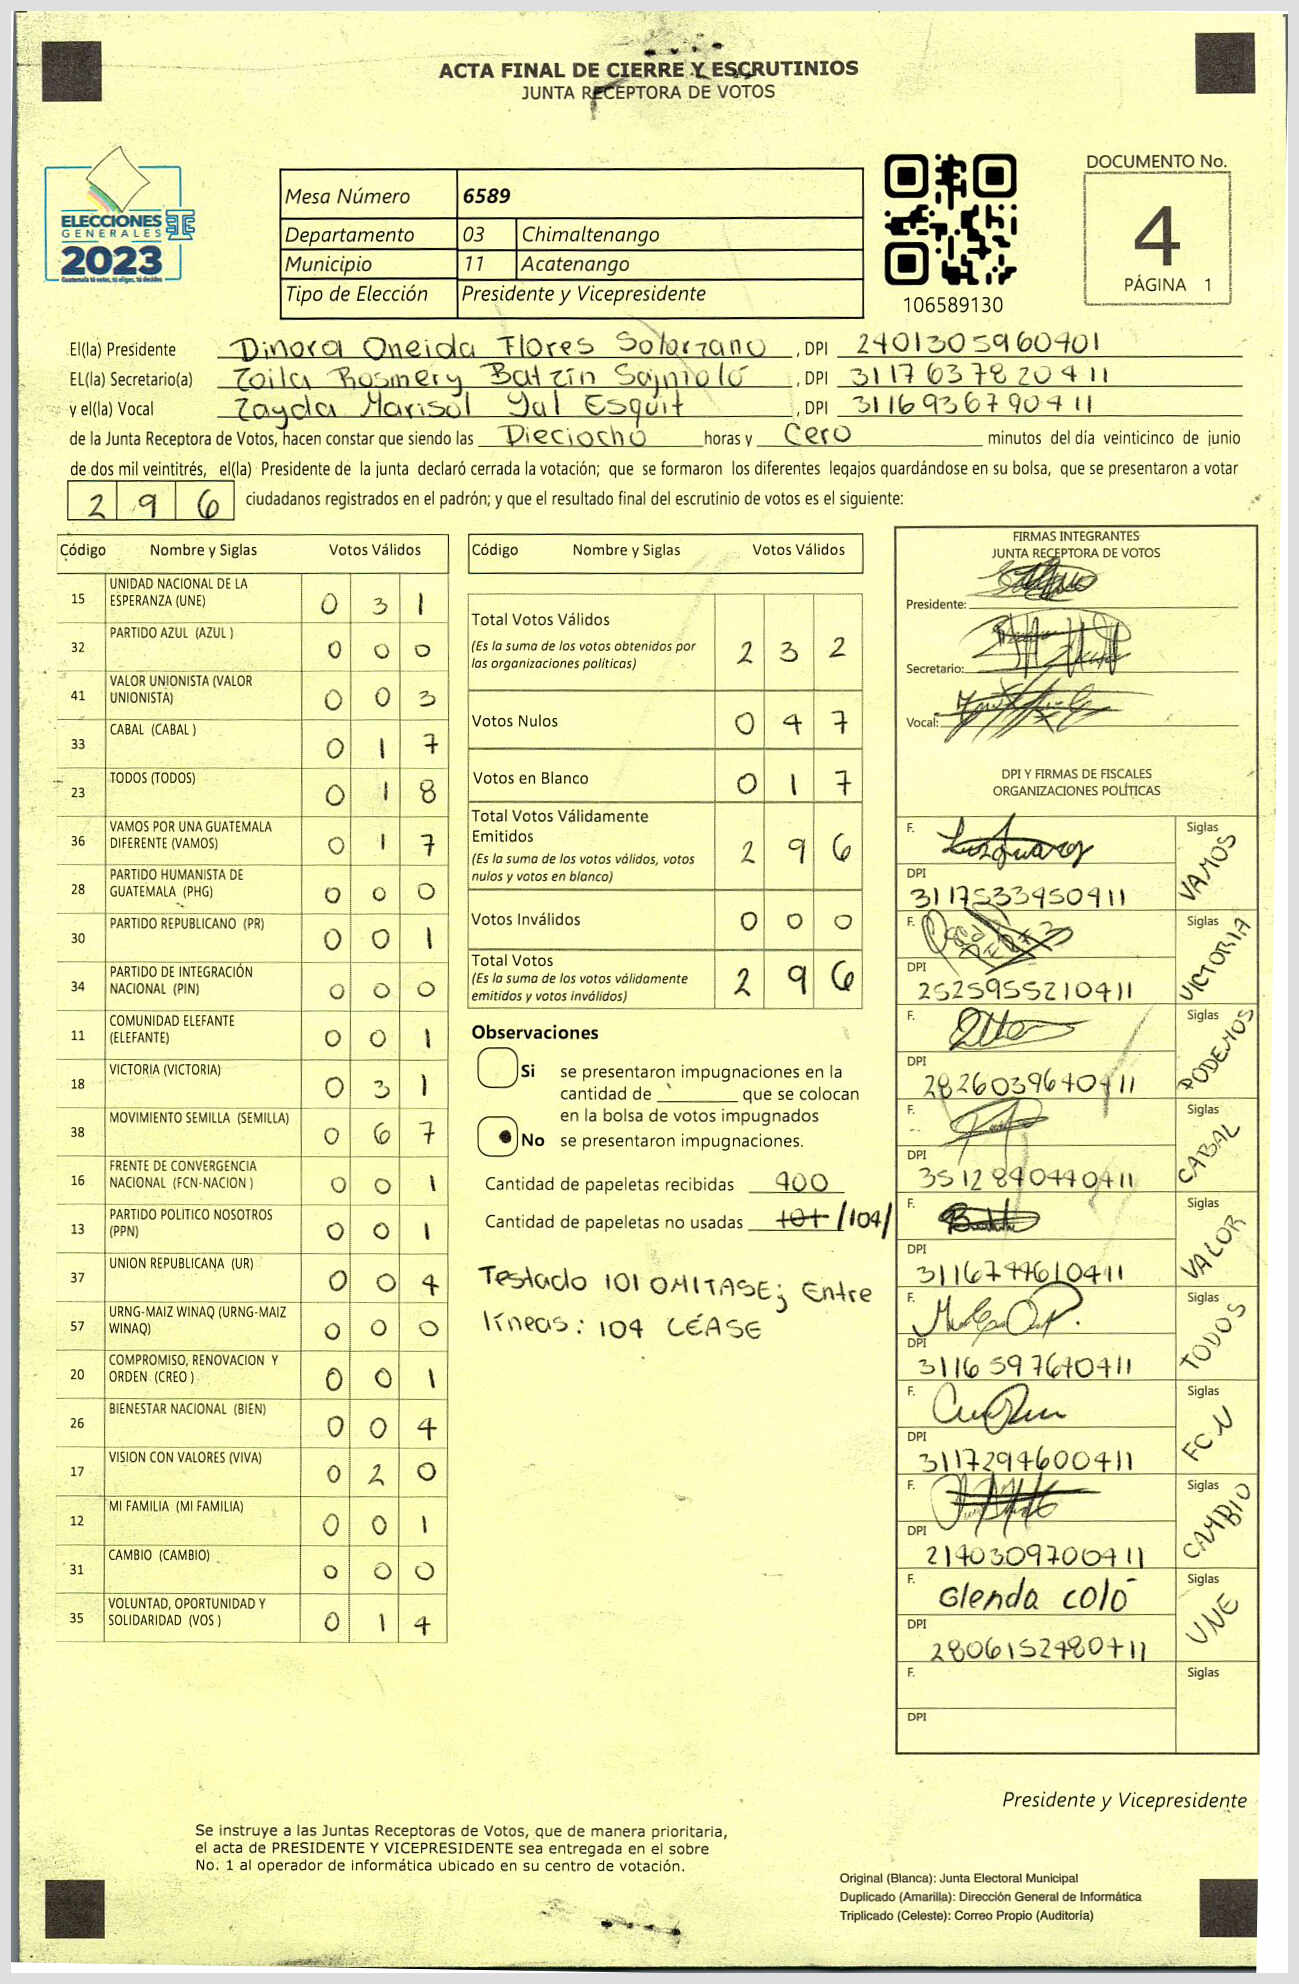 ACTA FINAL DE CIERRE Y ESCRUTINIOS
JUNTA RECEPTORA DE VOTOS
ELECCIONES
GENERALES
2023
Mesa Número 6589
Departamento 03 Chimaltenango
Municipio 11 Acatenango
Tipo de Elección Presidente y Vicepresidente
106589130
DOCUMENTO No.
4
PÁGINA 1
El(la) Presidente Dinora Oneida Flores Solorzano , DPI 2401305960401
EL(la) Secretario(a) Zoila Rosmery Batzín Sajnioló , DPI 3117637820411
y el(la) Vocal Zayda Marisol Yal Esquit , DPI 3116936790411
de la Junta Receptora de Votos, hacen constar que siendo las Dieciocho horas y Cero minutos del día veinticinco de junio
de dos mil veintitrés, el(la) Presidente de la junta declaró cerrada la votación; que se formaron los diferentes legajos guardándose en su bolsa, que se presentaron a votar
296 ciudadanos registrados en el padrón; y que el resultado final del escrutinio de votos es el siguiente:
Código Nombre y Siglas Votos Válidos
15 UNIDAD NACIONAL DE LA ESPERANZA (UNE) 0 3 1
32 PARTIDO AZUL (AZUL ) 0 0 0
41 VALOR UNIONISTA (VALOR UNIONISTA) 0 0 3
33 CABAL (CABAL ) 0 1 7
23 TODOS (TODOS) 0 1 8
36 VAMOS POR UNA GUATEMALA DIFERENTE (VAMOS) 0 1 7
28 PARTIDO HUMANISTA DE GUATEMALA (PHG) 0 0 0
30 PARTIDO REPUBLICANO (PR) 0 0 1
34 PARTIDO DE INTEGRACIÓN NACIONAL (PIN) 0 0 0
11 COMUNIDAD ELEFANTE (ELEFANTE) 0 0 1
18 VICTORIA (VICTORIA) 0 3 1
38 MOVIMIENTO SEMILLA (SEMILLA) 0 6 7
16 FRENTE DE CONVERGENCIA NACIONAL (FCN-NACION ) 0 0 1
13 PARTIDO POLITICO NOSOTROS (PPN) 0 0 1
37 UNION REPUBLICANA (UR) 0 0 4
57 URNG-MAIZ WINAQ (URNG-MAIZ WINAQ) 0 0 0
20 COMPROMISO, RENOVACION Y ORDEN (CREO ) 0 0 1
26 BIENESTAR NACIONAL (BIEN) 0 0 4
17 VISION CON VALORES (VIVA) 0 2 0
12 MI FAMILIA (MI FAMILIA) 0 0 1
31 CAMBIO (CAMBIO) 0 0 0
35 VOLUNTAD, OPORTUNIDAD Y SOLIDARIDAD (VOS ) 0 1 4
Código Nombre y Siglas Votos Válidos
Total Votos Válidos 2 3 2
(Es la suma de los votos obtenidos por
las organizaciones politicas)
Votos Nulos 0 4 7
Votos en Blanco 0 1 7
Total Votos Válidamente
Emitidos 2 9 6
(Es la suma de los votos válidos, votos
nulos y votos en blanco)
Votos Inválidos 0 0 0
Total Votos 2 9 6
(Es la suma de los votos válidamente
emitidos y votos inválidos)
Observaciones
Si se presentaron impugnaciones en la
cantidad de ________ que se colocan
en la bolsa de votos impugnados
No se presentaron impugnaciones.
Cantidad de papeletas recibidas 400
Cantidad de papeletas no usadas 101 /104/
Testado 101 OMITASE; Entre
líneas: 104 LÉASE
FIRMAS INTEGRANTES
JUNTA RECEPTORA DE VOTOS
Presidente:
Secretario:
Vocal:
DPI Y FIRMAS DE FISCALES
ORGANIZACIONES POLÍTICAS
F. Siglas VAMOS
DPI 3117533450411
F. Siglas VICTORIA
DPI 2525955210411
F. Siglas PODEMOS
DPI 2826039640411
F. Siglas CABAL
DPI 3512840440411
F. Siglas VALOR
DPI 3116744610411
F. Siglas TODOS
DPI 3116597640411
F. Siglas FCN
DPI 3117294600411
F. Siglas CAMBIO
DPI 2140309700411
F. Glenda Coló Siglas UNE
DPI 2806152480411
F. Siglas
DPI
Presidente y Vicepresidente
Se instruye a las Juntas Receptoras de Votos, que de manera prioritaria,
el acta de PRESIDENTE Y VICEPRESIDENTE sea entregada en el sobre
No. 1 al operador de informática ubicado en su centro de votación.
Original (Blanca): Junta Electoral Municipal
Duplicado (Amarilla): Dirección General de Informática
Triplicado (Celeste): Correo Propio (Auditoría)